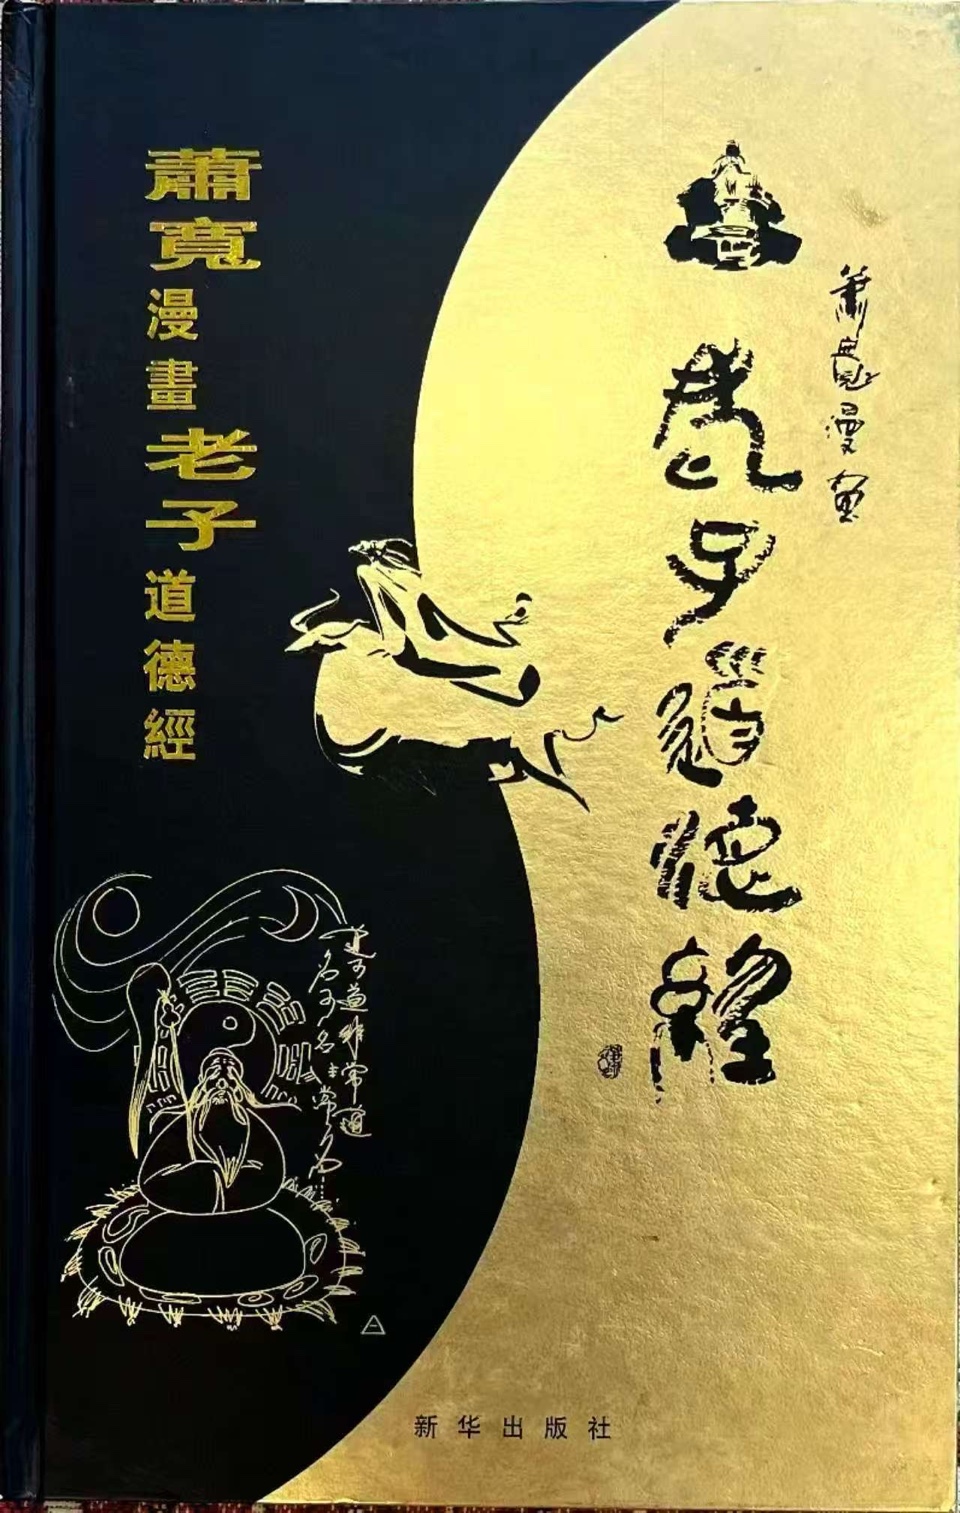 蕭寬漫画
老子道德經
蕭寬漫畫老子道德經
道可道非常道
名可名非常名……
新华出版社